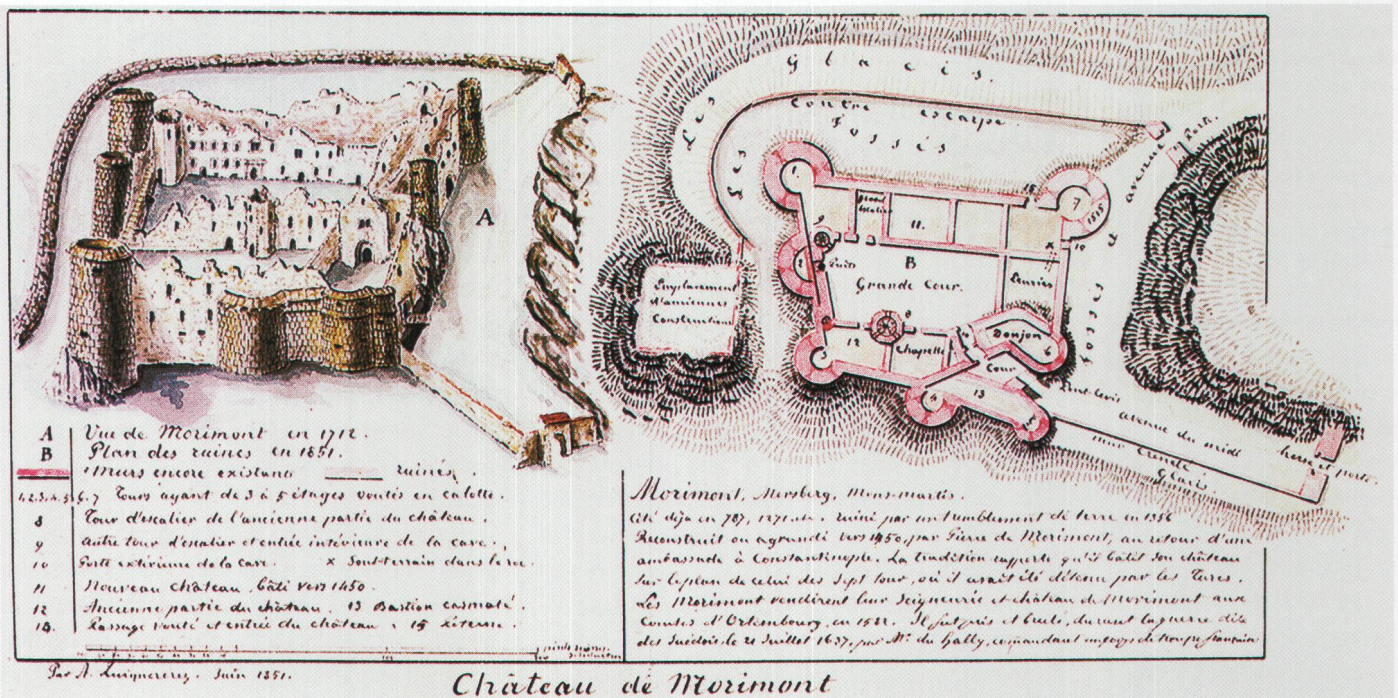 A
Les Glacis.
Contre escarpe
Les Fossés
Porte
avenue
15
1
7
1515
Grand
Escalier
11.
9
x
10
B
Puits
Grande Cour.
Ecuries
Fossés
Emplacement
d'anciennes
Constructions
8
12
Chapelle
Donjon
6
3
Cour
4
13
5
Pont-levis
avenue du midi
herse et porte.
mur crenelé
Glacis
A Vue de Morimont en 1712.
B Plan des ruines en 1851.
Murs encore existants ruinés.
1.2.3.4.5.6.7 Tours ayant de 3 à 5 étages voutés en calotte.
8 Tour d'escalier de l'ancienne partie du château.
9 Autre tour d'escalier et entrée intérieure de la cave.
10 Porte extérieure de la cave. x Souterrain dans le roc.
11 Nouveau château, bâti vers 1450.
12 Ancienne partie du château. 13 Bastion casmaté.
14. Passage vouté et entrée du château. 15
Morimont, Morsberg, Mons-martis.
Cité déja en 787, 1271 etc. ruiné par un tremblement de terre en 1356
Reconstruit ou agrandi vers 1450, par Pierre de Morimont, au retour d'une
ambassade à Constantinople. La tradition rapporte qu'il bâtit son château
sur le plan de celui des Sept tour, où il avait été détenu par les Turcs.
Les Morimont vendirent leur Seigneurie et château de Morimont aux
Comtes d'Ortembourg, en 1582. Il fut pris et brulé, durant la guerre dite
des Suédois, le 21 Juillet 1637, par Mr. du Hally, comandant un corps de troupe française
Par A. Quiquerez. Juin 1851.
Château de Morimont